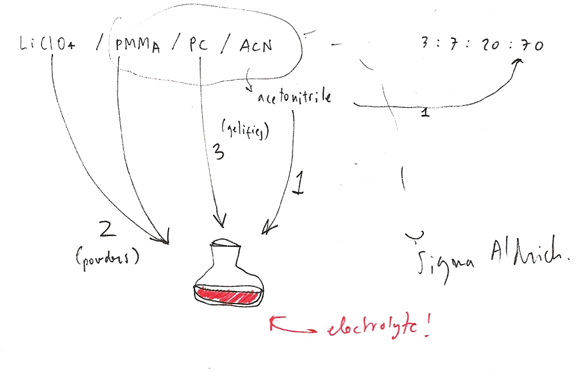 LiClO4 / PMMA / PC / ACN 3 : 7 : 20 : 70
acetonitrile
1
(gelifies)
3
1
2
(powders)
Sigma Aldrich.
electrolyte!